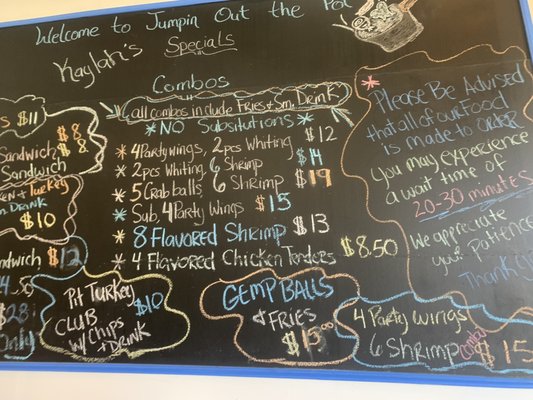 Welcome to Jumpin Out the Pot
Kaylah's Specials
Combos
(all combos include Fries + Sm. Drink)
*NO Subsitutions*
* 4 Party wings, 2 pcs Whiting $12
* 2 pcs Whiting, 6 Shrimp $14
* 5 Crab balls 6 Shrimp $19
* Sub, 4 Party Wings $15
* 8 Flavored Shrimp $13
* 4 Flavored Chicken Tenders $8.50
$11
Sandwich $8
Sandwich $8
Sandwich
Turkey
Drink
$10
Sandwich $12
Only
Pit Turkey $10
CLUB
w/ Chips
+ Drink
GEMP BALLS
& FRIES
$13.00
4 Party Wings
6 Shrimp combo $15
* Please Be Advised
that all of our Food
is made to order
You may experience
a wait time of
20-30 minutes
We appreciate
your Patience
Thank